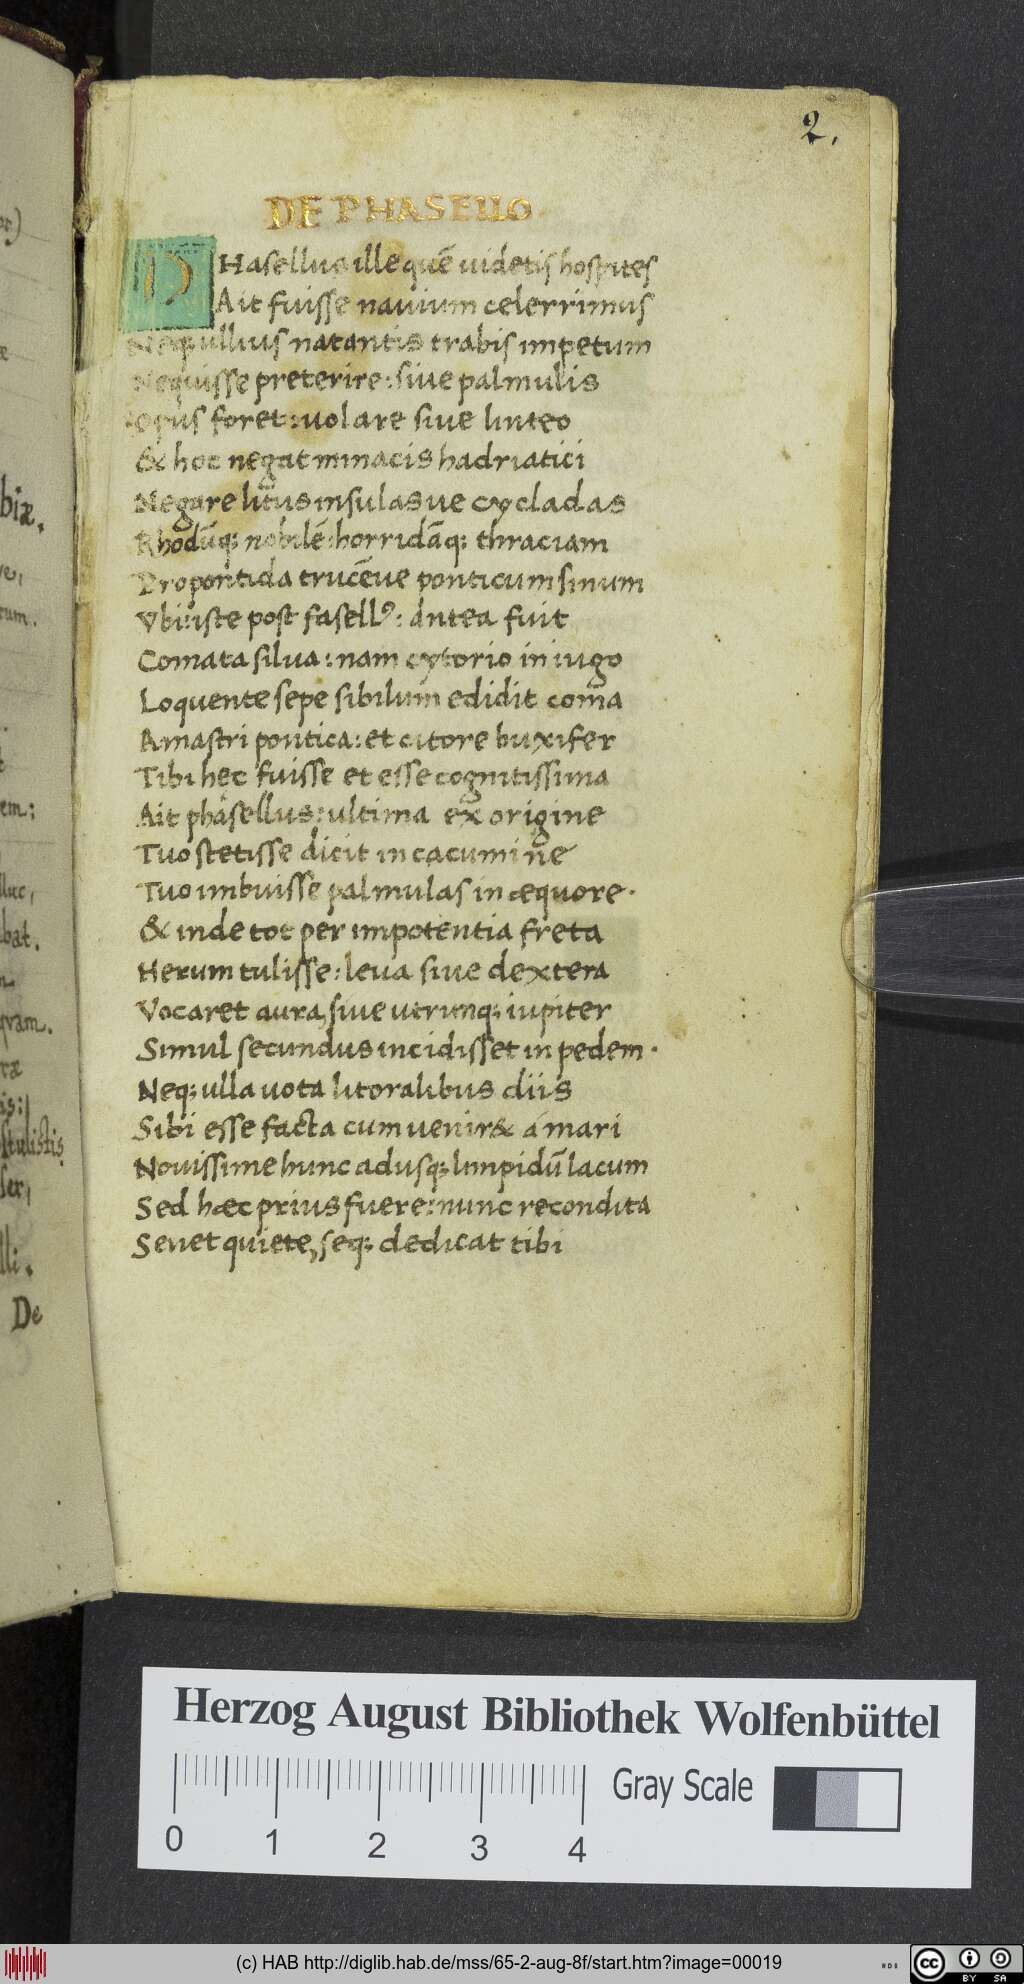 2.
DE PHASELLO
PHasellus ille quē uidetis hospites
Ait fuisse nauium celerrimus
Neq; ullius natantis trabis impetum
Nequisse preterire: siue palmulis
Opus foret: uolare siue linteo
& hoc negat minacis hadriatici
Negare litus insulasue cycladas
Rhodūq; nobilē: horridāq; thraciam
Propontida trucēue ponticum sinum
Vbi: iste post fasellꝰ: antea fuit
Comata silua: nam cytorio in iugo
Loquente sepe sibilum edidit coma
Amastri pontica: et citore buxifer
Tibi hec fuisse et esse cognitissima
Ait phasellus: ultima ex origine
Tuo stetisse dicit in cacumine
Tuo imbuisse palmulas in æquore.
& inde tot per impotentia freta
Herum tulisse: leua siue dextera
Vocaret aura, siue utrunq; iupiter
Simul secundus incidisset in pedem.
Neq; ulla uota litoralibus diis
Sibi esse facta cum uenir& á mari
Nouissime hunc adusq; limpidū lacum
Sed hæc prius fuere: nunc recondita
Senet quiete, seq; dedicat tibi
biæ.
rum.
em:
lluc,
bat.
qvam.
ræ
is:
stulistis
ser,
lli.
De
Herzog August Bibliothek Wolfenbüttel
0 1 2 3 4
Gray Scale
(c) HAB http://diglib.hab.de/mss/65-2-aug-8f/start.htm?image=00019
HAB
CC BY SA